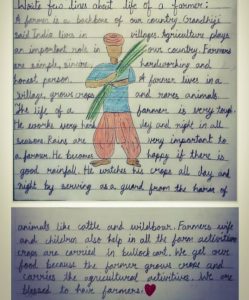 Write few lines about life of a farmer:
A farmer is a backbone of our country. Gandhiji
said India lives in villages. Agriculture plays
an important role in our country. Farmers
are simple, sincere, hardworking and
honest person. A farmer lives in a
village, grows crops and rares animals.
The life of a farmer is very tough.
He works very hard day and night in all
season. Rains are very important to
a farmer. He becomes happy if there is
good rainfall. He watches his crops all day and
night by serving as a guard from the harm of
animals like cattle and wildboar. Farmers wife
and children also help in all the farm activities
crops are carried in bullock cart. We get our
food because the farmer grows crops and
carries the agricultural activities. We are
blessed to have farmers.